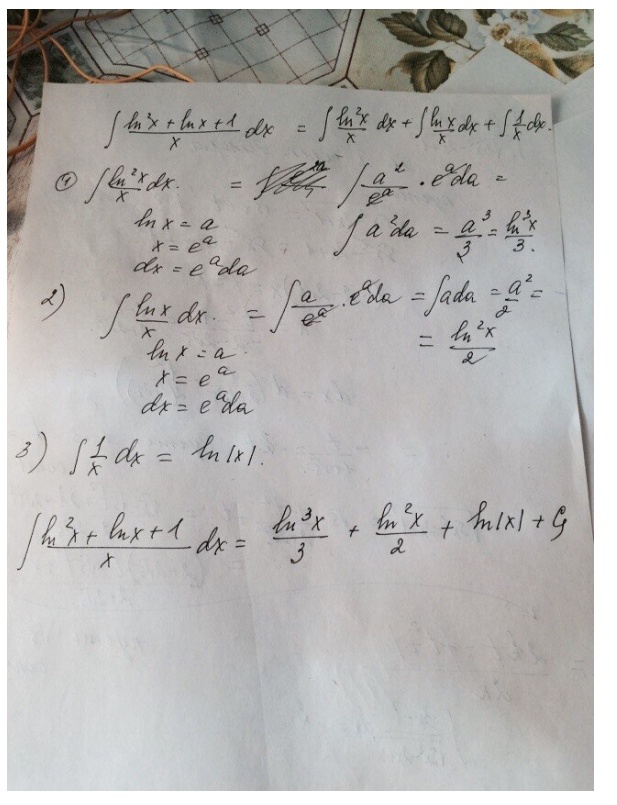 ∫ (ln²x + ln x + 1)/x dx = ∫ ln²x/x dx + ∫ ln x/x dx + ∫ 1/x dx.
1) ∫ ln²x/x dx. = ∫ a²/eᵃ · eᵃda =
ln x = a
x = eᵃ
dx = eᵃda
∫ a²da = a³/3 = ln³x/3.
2) ∫ ln x/x dx. = ∫ a/eᵃ · eᵃda = ∫ada = a²/2 =
= ln²x/2
ln x = a
x = eᵃ
dx = eᵃda
3) ∫ 1/x dx = ln|x|.
∫ (ln²x + ln x + 1)/x dx = ln³x/3 + ln²x/2 + ln|x| + C